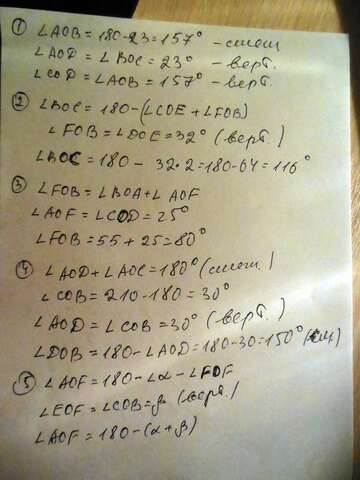 ① ∠AOB = 180-23 = 157° - смеж.
∠AOD = ∠BOC = 23° - верт.
∠COD = ∠AOB = 157° - верт.
② ∠BOC = 180-(∠COE + ∠FOB)
∠FOB = ∠DOE = 32° (верт.)
∠BOC = 180 - 32·2 = 180-64 = 116°
③ ∠FOB = ∠BOA + ∠AOF
∠AOF = ∠COD = 25°
∠FOB = 55 + 25 = 80°
④ ∠AOD + ∠AOC = 180° (смеж.)
∠COB = 210-180 = 30°
∠AOD = ∠COB = 30° (верт.)
∠DOB = 180-∠AOD = 180-30 = 150°
⑤ ∠AOF = 180-∠α - ∠FOF
∠EOF = ∠COB = β (верт.)
∠AOF = 180-(α+β)